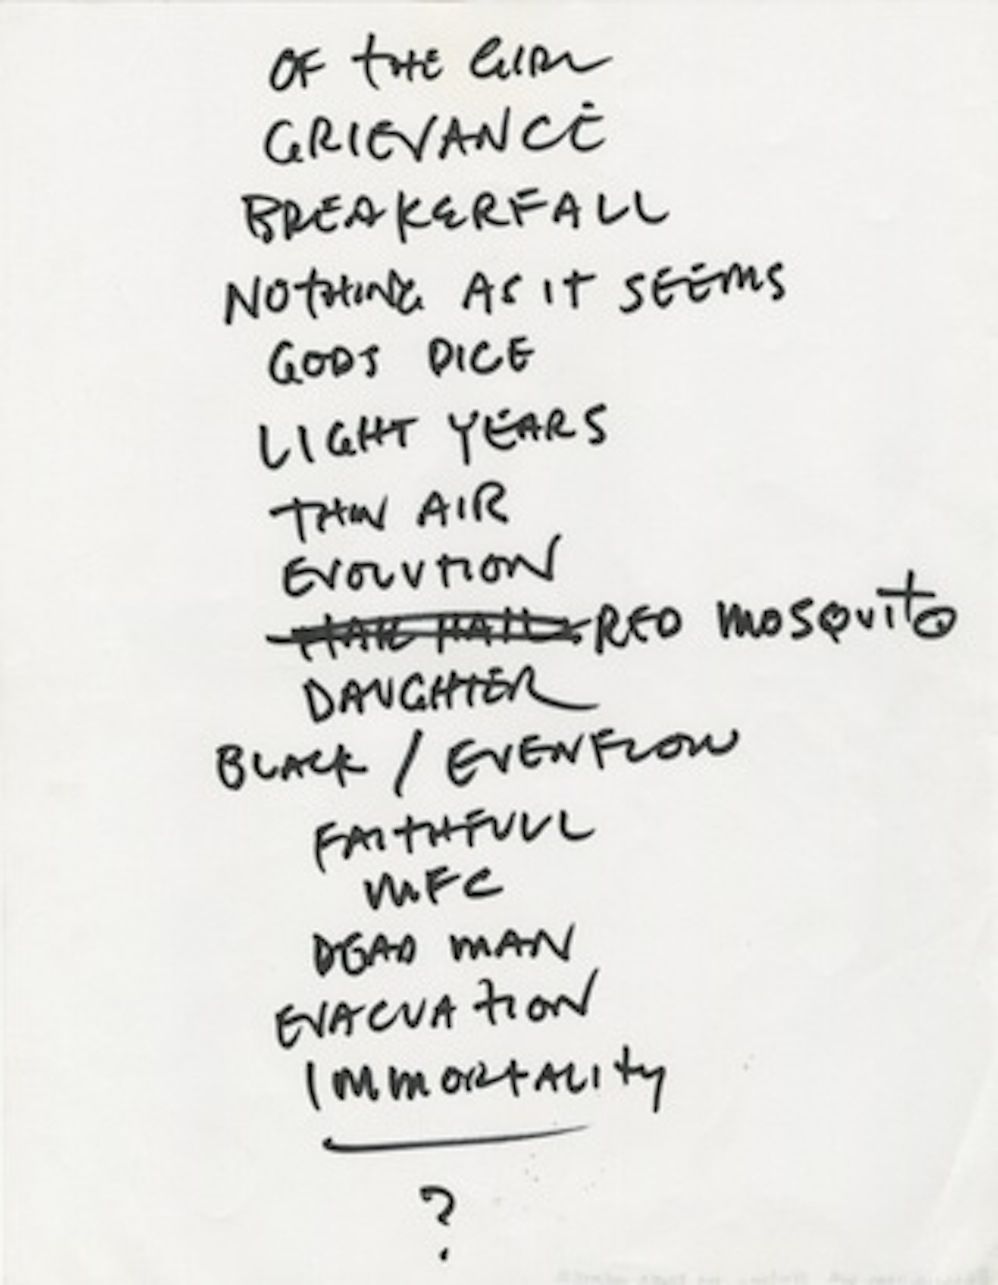 OF THE GIRL
GRIEVANCE
BREAKERFALL
NOTHING AS IT SEEMS
GODS DICE
LIGHT YEARS
THIN AIR
EVOLUTION
HAIL HAIL RED MOSQUITO
DAUGHTER
BLACK / EVENFLOW
FAITHFULL
MFC
DEAD MAN
EVACUATION
IMMORTALITY
?